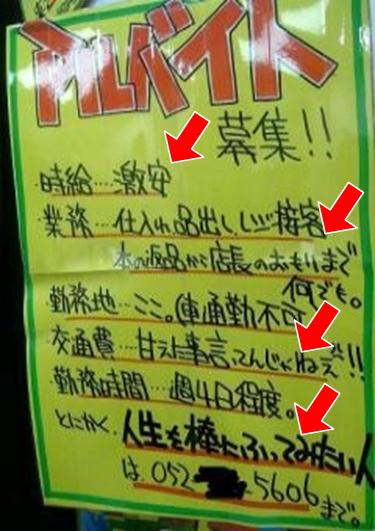 アルバイト
募集!!
・時給…激安
・業務…仕入れ品出し、レジ接客
本の返品から店長のおもりまで
何でも。
・勤務地…ここ。(車通勤不可
・交通費…甘えた事言ってんじゃねぇ!!
・勤務時間…週4日程度。
とにかく、人生を棒にふってみたい人
は 052 5606
まで。